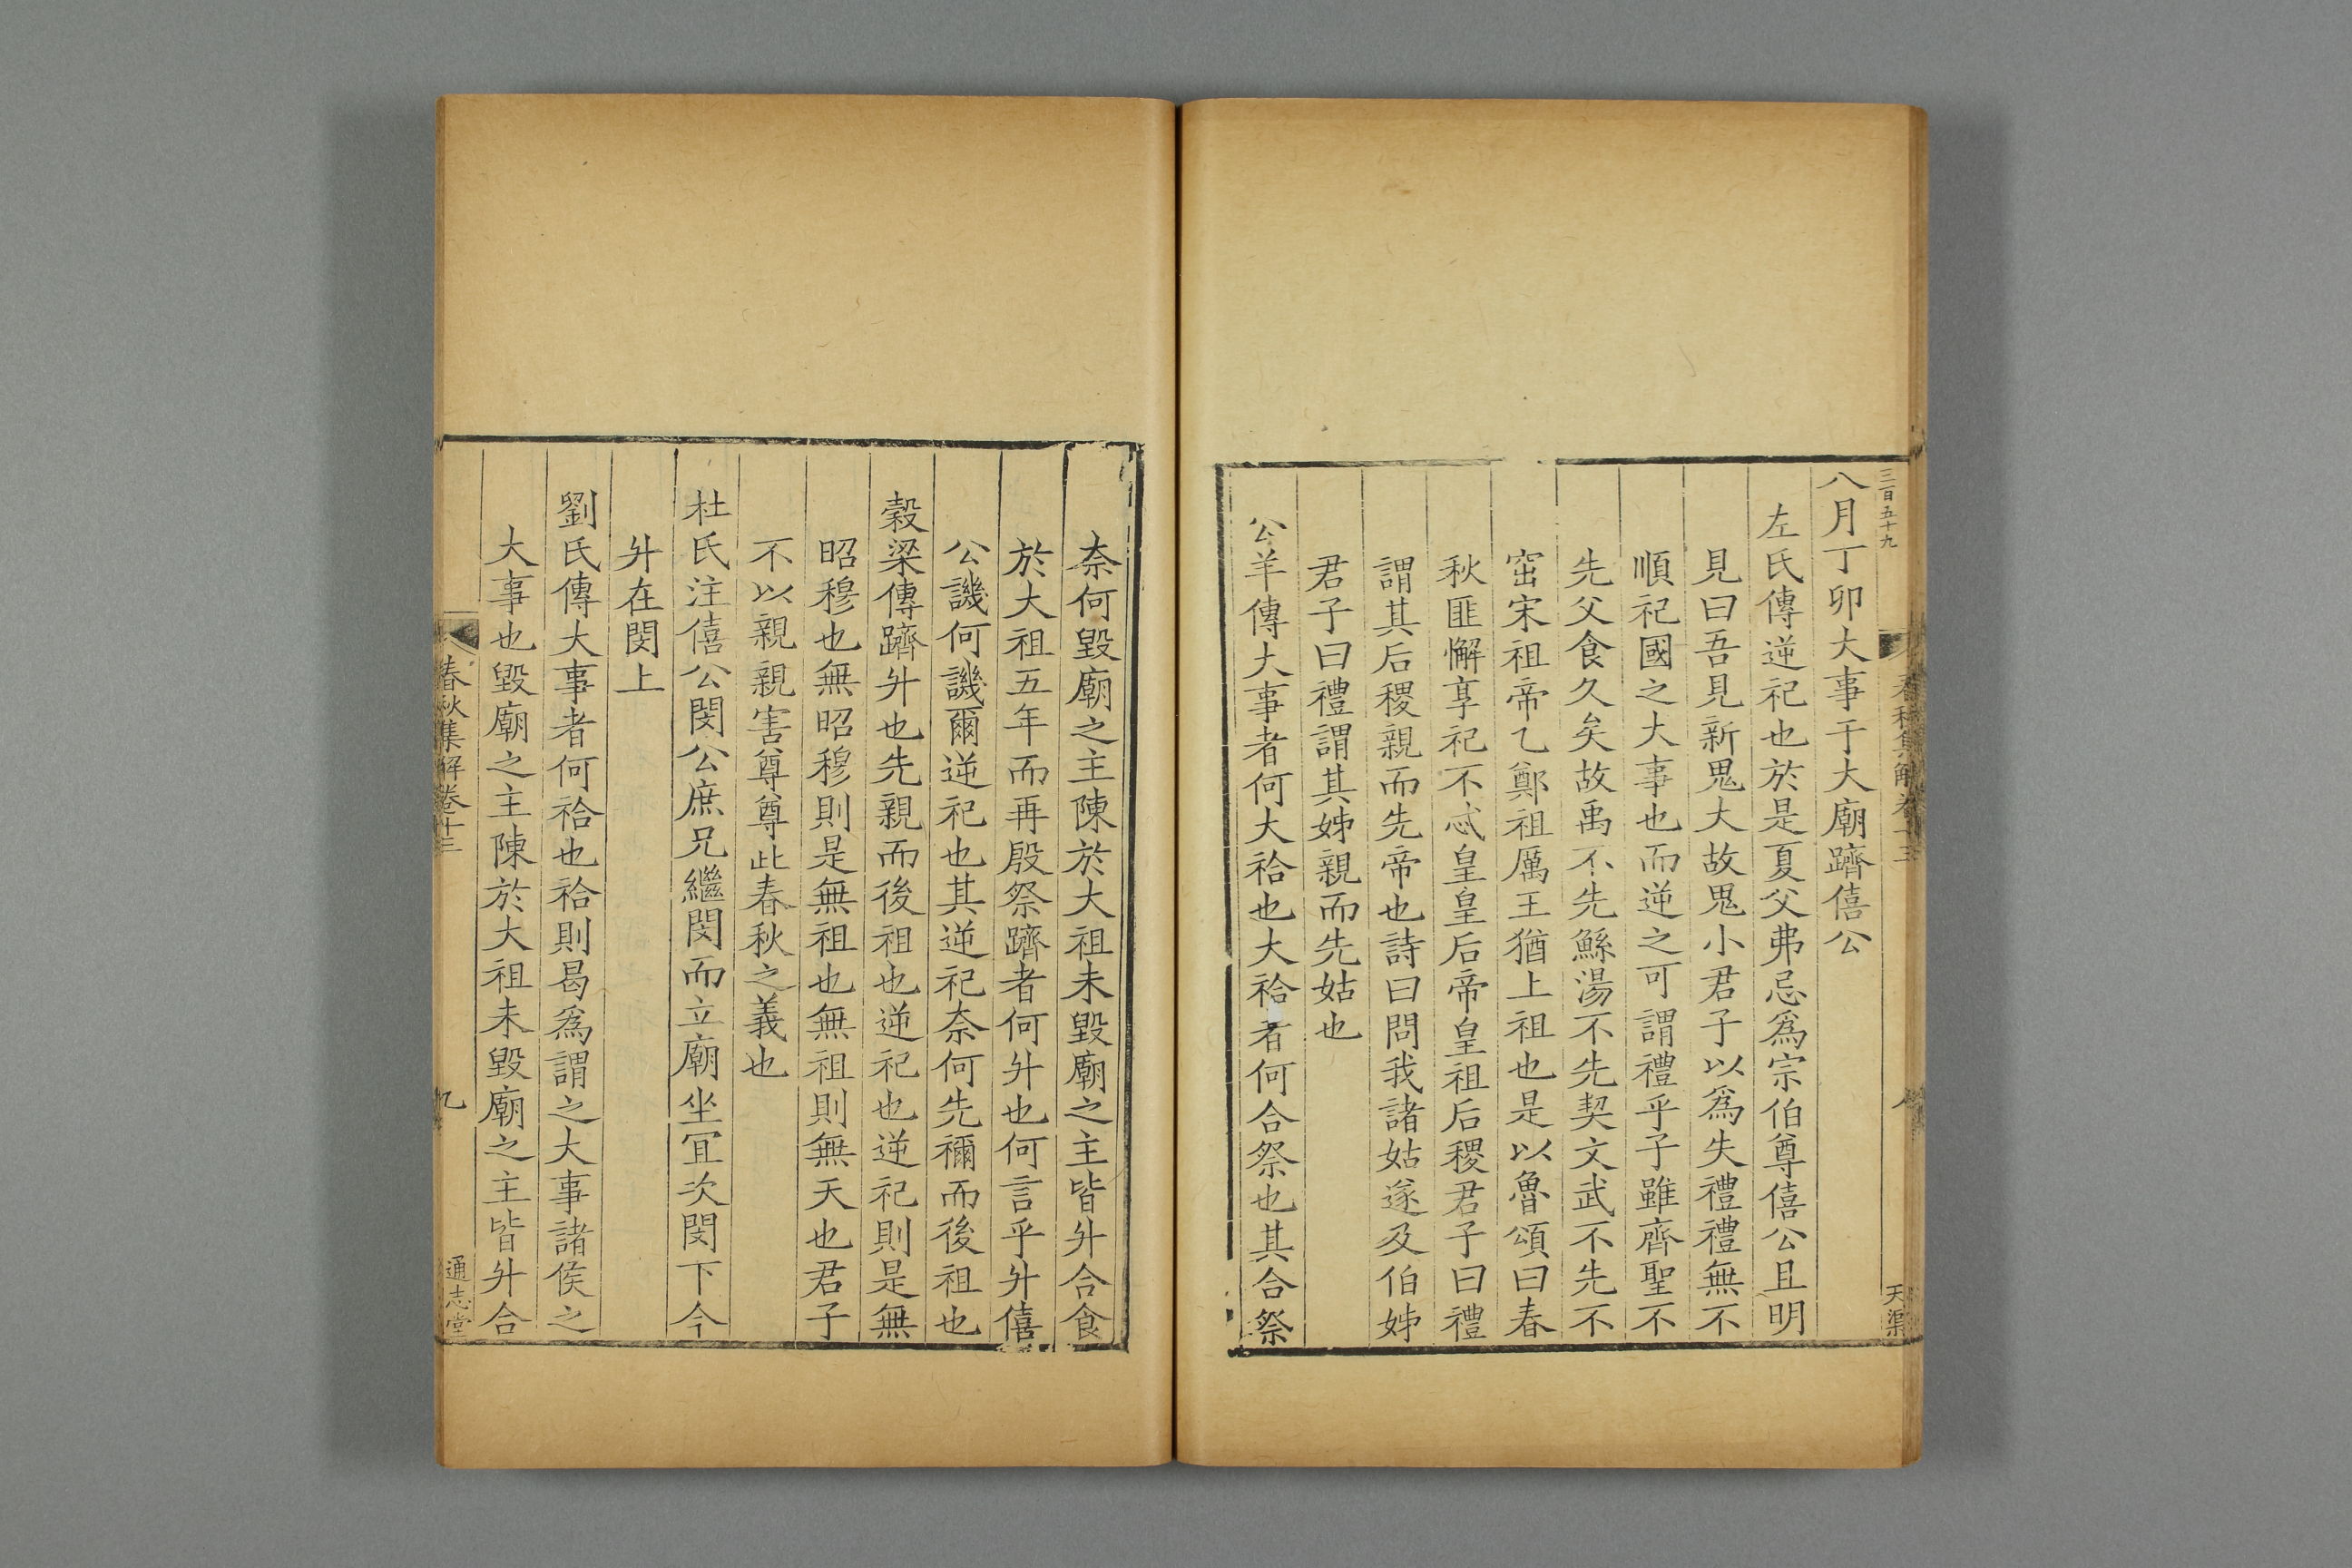 三百五十九
春秋集解卷十三
八
天渠
八月丁卯大事于大廟躋僖公
左氏傳逆祀也於是夏父弗忌爲宗伯尊僖公且明
見曰吾見新鬼大故鬼小君子以爲失禮禮無不
順祀國之大事也而逆之可謂禮乎子雖齊聖不
先父食久矣故禹不先鯀湯不先契文武不先不
窋宋祖帝乙鄭祖厲王猶上祖也是以魯頌曰春
秋匪懈享祀不忒皇皇后帝皇祖后稷君子曰禮
謂其后稷親而先帝也詩曰問我諸姑遂及伯姊
君子曰禮謂其姊親而先姑也
公羊傳大事者何大祫也大祫者何合祭也其合祭
奈何毀廟之主陳於大祖未毀廟之主皆升合食
於大祖五年而再殷祭躋者何升也何言乎升僖
公譏何譏爾逆祀也其逆祀奈何先禰而後祖也
穀梁傳躋升也先親而後祖也逆祀也逆祀則是無
昭穆也無昭穆則是無祖也無祖則無天也君子
不以親親害尊尊此春秋之義也
杜氏注僖公閔公庶兄繼閔而立廟坐宜次閔下今
升在閔上
劉氏傳大事者何祫也祫則曷爲謂之大事諸侯之
大事也毀廟之主陳於大祖未毀廟之主皆升合
春秋集解卷十三
九
通志堂